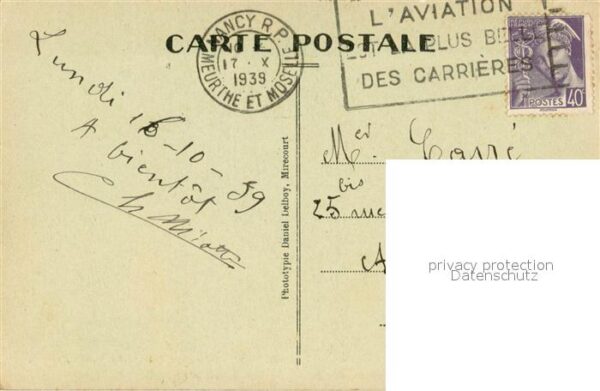 CARTE POSTALE
NANCY R.P.
17 - X
1939
MEURTHE ET MOSELLE
L'AVIATION
EST LA PLUS BELLE
DES CARRIÈRES
POSTES 40c
Lundi 16-10-39
A bientôt
Phototypie Daniel Delboy, Mirecourt
Mer Carré
bis
25 rue
A
privacy protection
Datenschutz